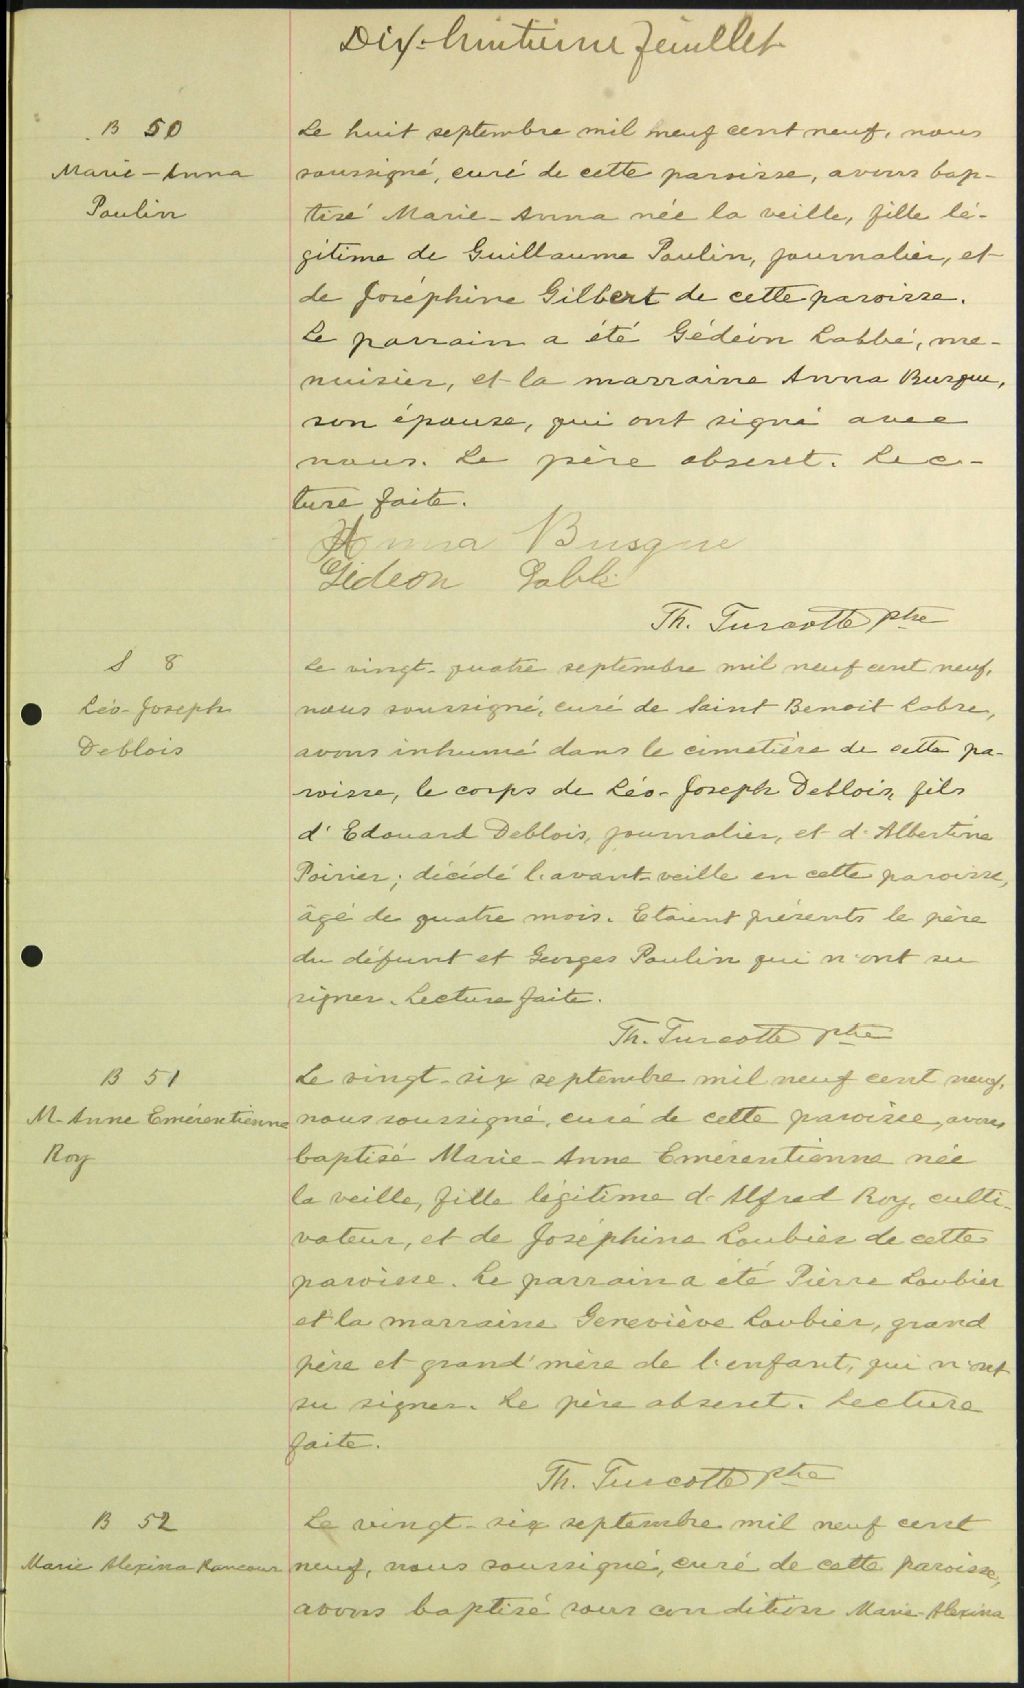 Dix-huitième feuillet
B 50
Marie-Anna
Paulin
Le huit septembre mil neuf cent neuf, nous
soussigné, curé de cette paroisse, avons bap-
tisé Marie-Anna née la veille, fille lé-
gitime de Guillaume Paulin, journalier, et
de Joséphine Gilbert de cette paroisse.
Le parrain a été Gédéon Labbé, me-
nuisier, et la marraine Anna Busque,
son épouse, qui ont signé avec
nous. Le père absent. Lec-
ture faite.
Anna Busque
Gédeon Labbé
Th. Turcotte ptre
S 8
Léo-Joseph
Deblois
Le vingt-quatre septembre mil neuf cent neuf,
nous soussigné, curé de Saint Benoit Labre,
avons inhumé dans le cimetière de cette pa-
roisse, le corps de Léo-Joseph Deblois, fils
d'Edouard Deblois, journalier, et d'Albertine
Poirier; décédé l'avant-veille en cette paroisse,
âgé de quatre mois. Etaient présents le père
du défunt et Georges Paulin qui n'ont su
signer. Lecture faite.
Th. Turcotte ptre
B 51
M-Anne Emérentienne
Roy
Le vingt-six septembre mil neuf cent neuf,
nous soussigné, curé de cette paroisse, avons
baptisé Marie-Anne Emérentienne née
la veille, fille légitime d'Alfred Roy, culti-
vateur, et de Joséphine Loubier de cette
paroisse. Le parrain a été Pierre Loubier
et la marraine Geneviève Loubier, grand
père et grand'mère de l'enfant, qui n'ont
su signer. Le père absent. Lecture
faite.
Th. Turcotte ptre
B 52
Marie Alexina Rancour
Le vingt-six septembre mil neuf cent
neuf, nous soussigné, curé de cette paroisse,
avons baptisé sous condition Marie-Alexina